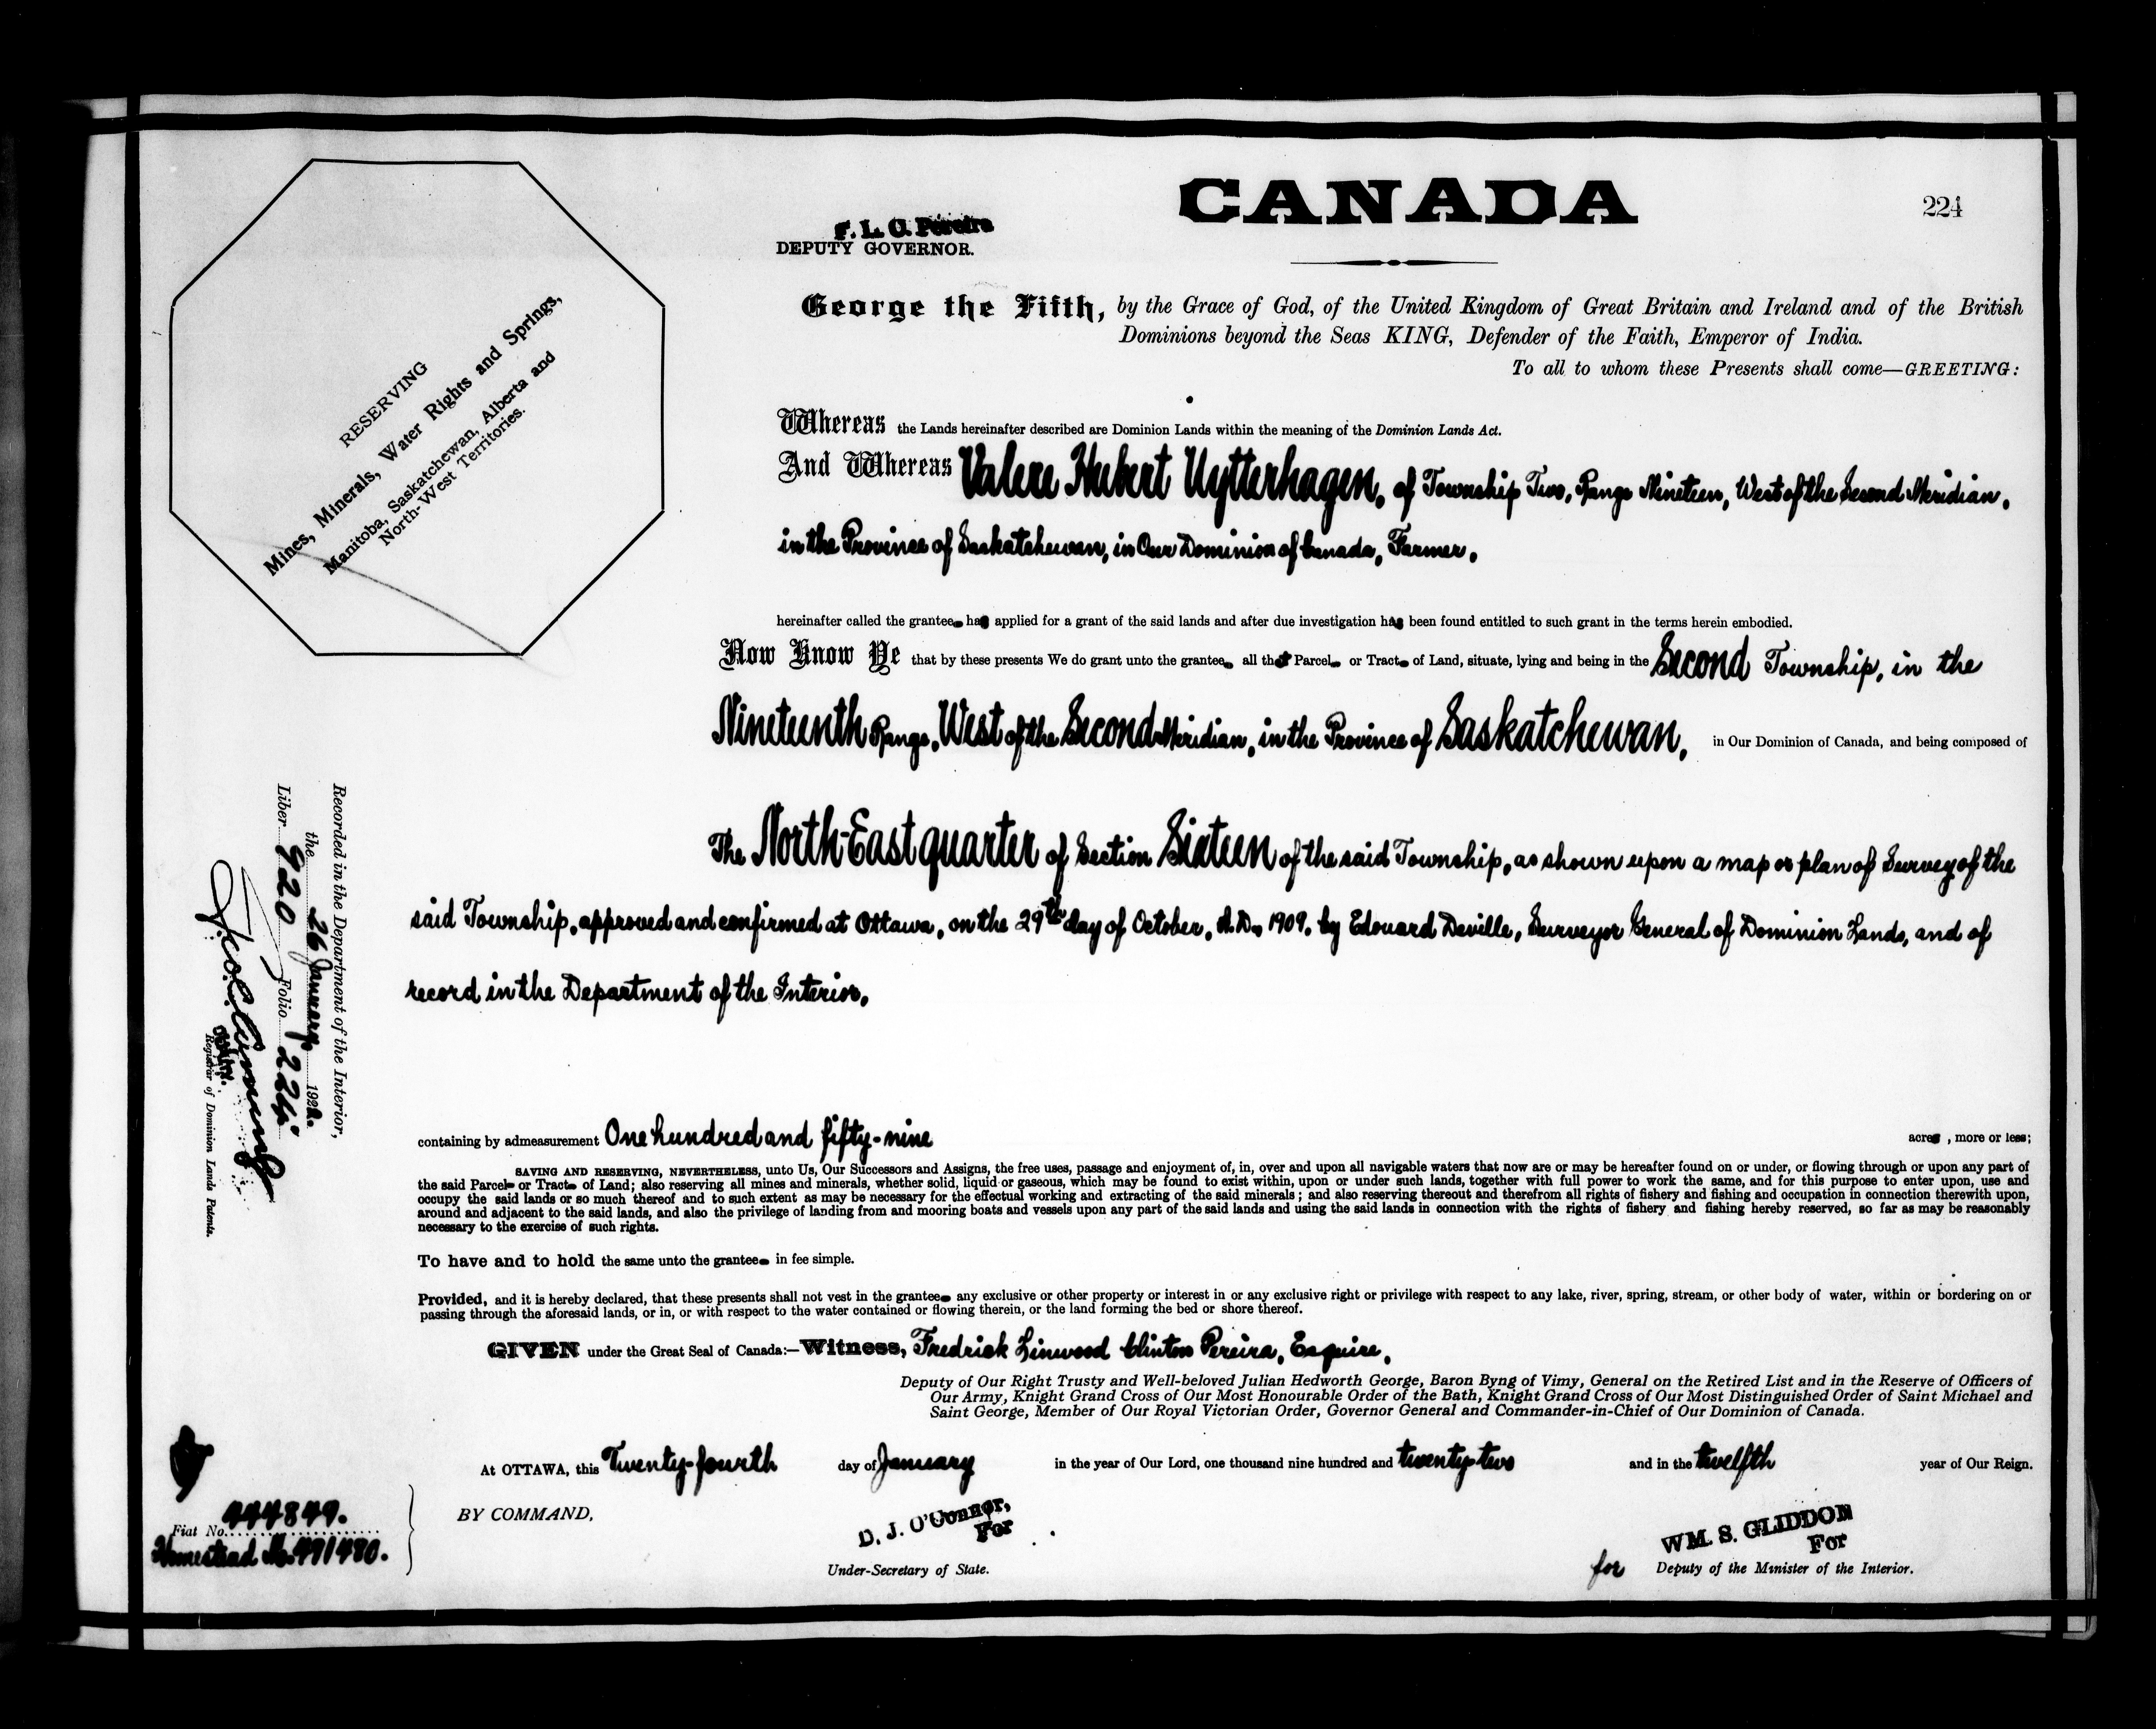 CANADA
224
F. L. C. Pereira
DEPUTY GOVERNOR.
George the Fifth, by the Grace of God, of the United Kingdom of Great Britain and Ireland and of the British
Dominions beyond the Seas KING, Defender of the Faith, Emperor of India.
To all to whom these Presents shall come—GREETING:
RESERVING
Mines, Minerals, Water Rights and Springs,
Manitoba, Saskatchewan, Alberta and
North-West Territories.
Whereas the Lands hereinafter described are Dominion Lands within the meaning of the Dominion Lands Act.
And Whereas Valere Hubert Uytterhagen, of Township Two, Range Nineteen, West of the Second Meridian,
in the Province of Saskatchewan, in Our Dominion of Canada, Farmer,
hereinafter called the grantee has applied for a grant of the said lands and after due investigation has been found entitled to such grant in the terms herein embodied.
Now Know Ye that by these presents We do grant unto the grantee all that Parcel or Tract of Land, situate, lying and being in the Second Township, in the
Nineteenth Range, West of the Second Meridian, in the Province of Saskatchewan, in Our Dominion of Canada, and being composed of
The North-East quarter of Section Sixteen of the said Township, as shown upon a map or plan of Survey of the
said Township, approved and confirmed at Ottawa, on the 29th day of October, A.D., 1909, by Edouard Deville, Surveyor General of Dominion Lands, and of
record in the Department of the Interior,
Recorded in the Department of the Interior,
the 26 January 1922.
Liber 920 Folio 224
Registrar of Dominion Lands Patents.
containing by admeasurement One hundred and fifty-nine acres, more or less;
SAVING AND RESERVING, NEVERTHELESS, unto Us, Our Successors and Assigns, the free uses, passage and enjoyment of, in, over and upon all navigable waters that now are or may be hereafter found on or under, or flowing through or upon any part of
the said Parcel or Tract of Land; also reserving all mines and minerals, whether solid, liquid or gaseous, which may be found to exist within, upon or under such lands, together with full power to work the same, and for this purpose to enter upon, use and
occupy the said lands or so much thereof and to such extent as may be necessary for the effectual working and extracting of the said minerals; and also reserving thereout and therefrom all rights of fishery and fishing and occupation in connection therewith upon,
around and adjacent to the said lands, and also the privilege of landing from and mooring boats and vessels upon any part of the said lands and using the said lands in connection with the rights of fishery and fishing hereby reserved, so far as may be reasonably
necessary to the exercise of such rights.
To have and to hold the same unto the grantee in fee simple.
Provided, and it is hereby declared, that these presents shall not vest in the grantee any exclusive or other property or interest in or any exclusive right or privilege with respect to any lake, river, spring, stream, or other body of water, within or bordering on or
passing through the aforesaid lands, or in, or with respect to the water contained or flowing therein, or the land forming the bed or shore thereof.
GIVEN under the Great Seal of Canada:—Witness, Fredrick Linwood Clinton Pereira, Esquire,
Deputy of Our Right Trusty and Well-beloved Julian Hedworth George, Baron Byng of Vimy, General on the Retired List and in the Reserve of Officers of
Our Army, Knight Grand Cross of Our Most Honourable Order of the Bath, Knight Grand Cross of Our Most Distinguished Order of Saint Michael and
Saint George, Member of Our Royal Victorian Order, Governor General and Commander-in-Chief of Our Dominion of Canada.
At OTTAWA, this Twenty-fourth day of January in the year of Our Lord, one thousand nine hundred and twenty-two and in the twelfth year of Our Reign.
BY COMMAND,
D. J. O'Connor,
For
Under-Secretary of State.
WM. S. GLIDDON
For
for Deputy of the Minister of the Interior.
Fiat No. 444849.
Homestead No. 491480.